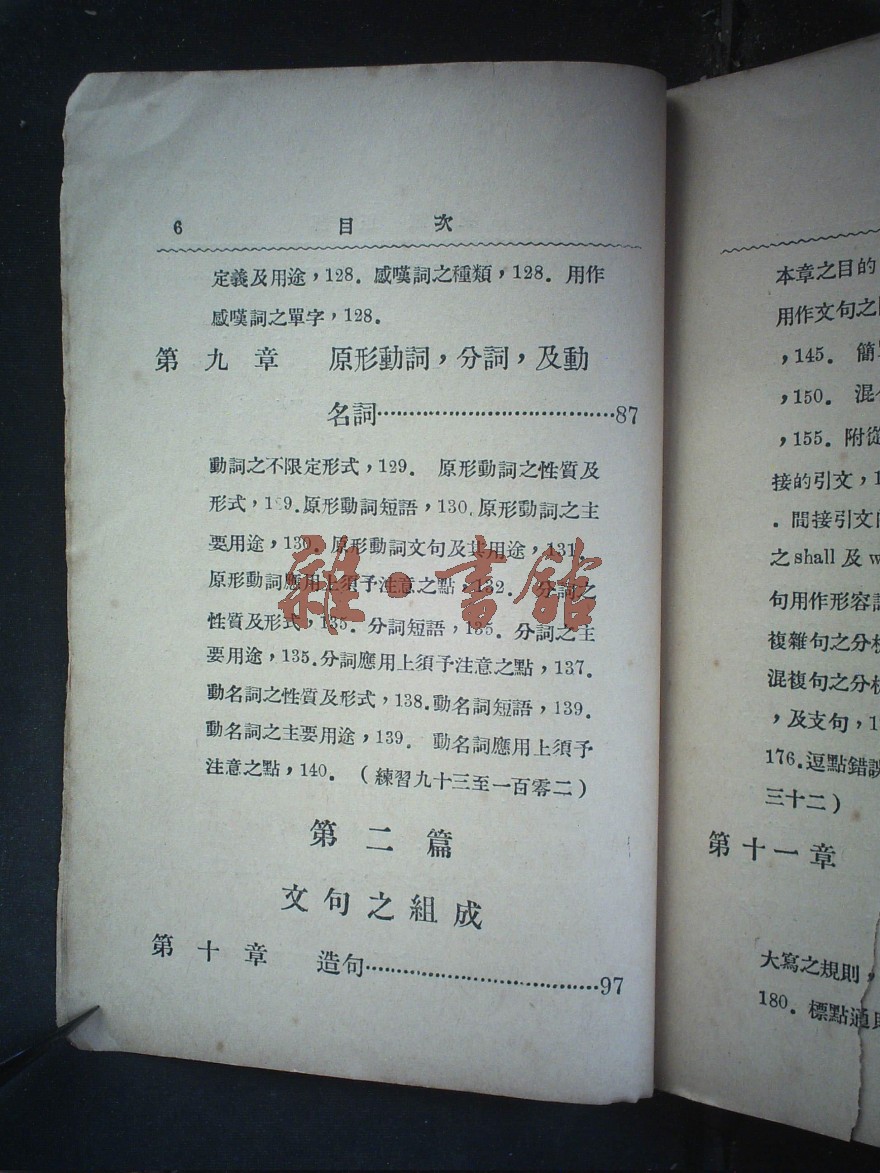 6 目 次
定義及用途，128． 感嘆詞之種類，128． 用作
感嘆詞之單字，128．
第 九 章 原形動詞，分詞，及動
名詞……………………………87
動詞之不限定形式，129． 原形動詞之性質及
形式，129．原形動詞短語，130．原形動詞之主
要用途，130．原形動詞文句及其用途，131．
原形動詞應用上須予注意之點，132． 分詞之
性質及形式，135．分詞短語，135． 分詞之主
要用途，135．分詞應用上須予注意之點，137．
動名詞之性質及形式，138．動名詞短語，139．
動名詞之主要用途，139． 動名詞應用上須予
注意之點，140．（練習九十三至一百零二）
第 二 篇
文 句 之 組 成
第 十 章 造句……………………………97
雜·書館
本章之目的
用作文句之
，145． 簡
，150． 混
，155．附從
接的引文，1
．間接引文
之shall 及 w
句用作形容
複雜句之分析
混複句之分析
，及支句，1
176．逗點錯誤
三十二）
第 十 一 章
大寫之規則，
180．標點通